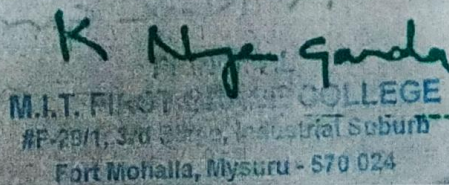 K
M.I.T. FIRST GRADE COLLEGE
#F-29/1, 3rd Stage, Industrial Suburb
Fort Mohalla, Mysuru - 570 024